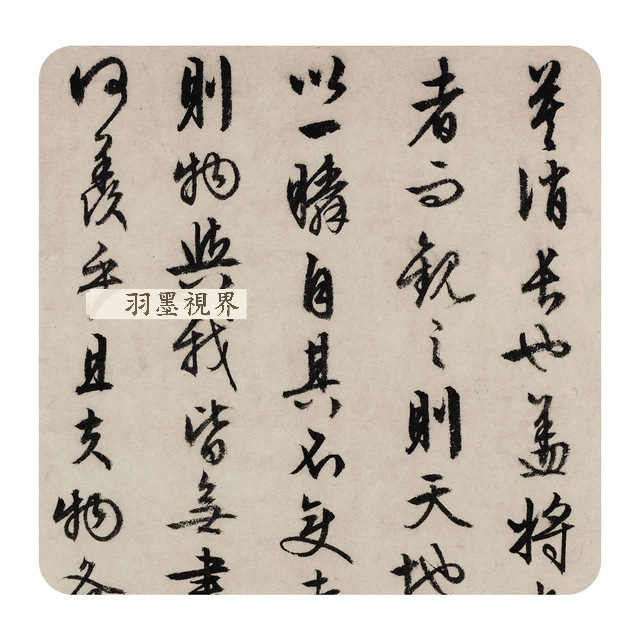 莫消長也盖將
者而觀之則天地
以一瞬自其不變
則物與我皆無盡
何羨乎且夫物各
羽墨視界